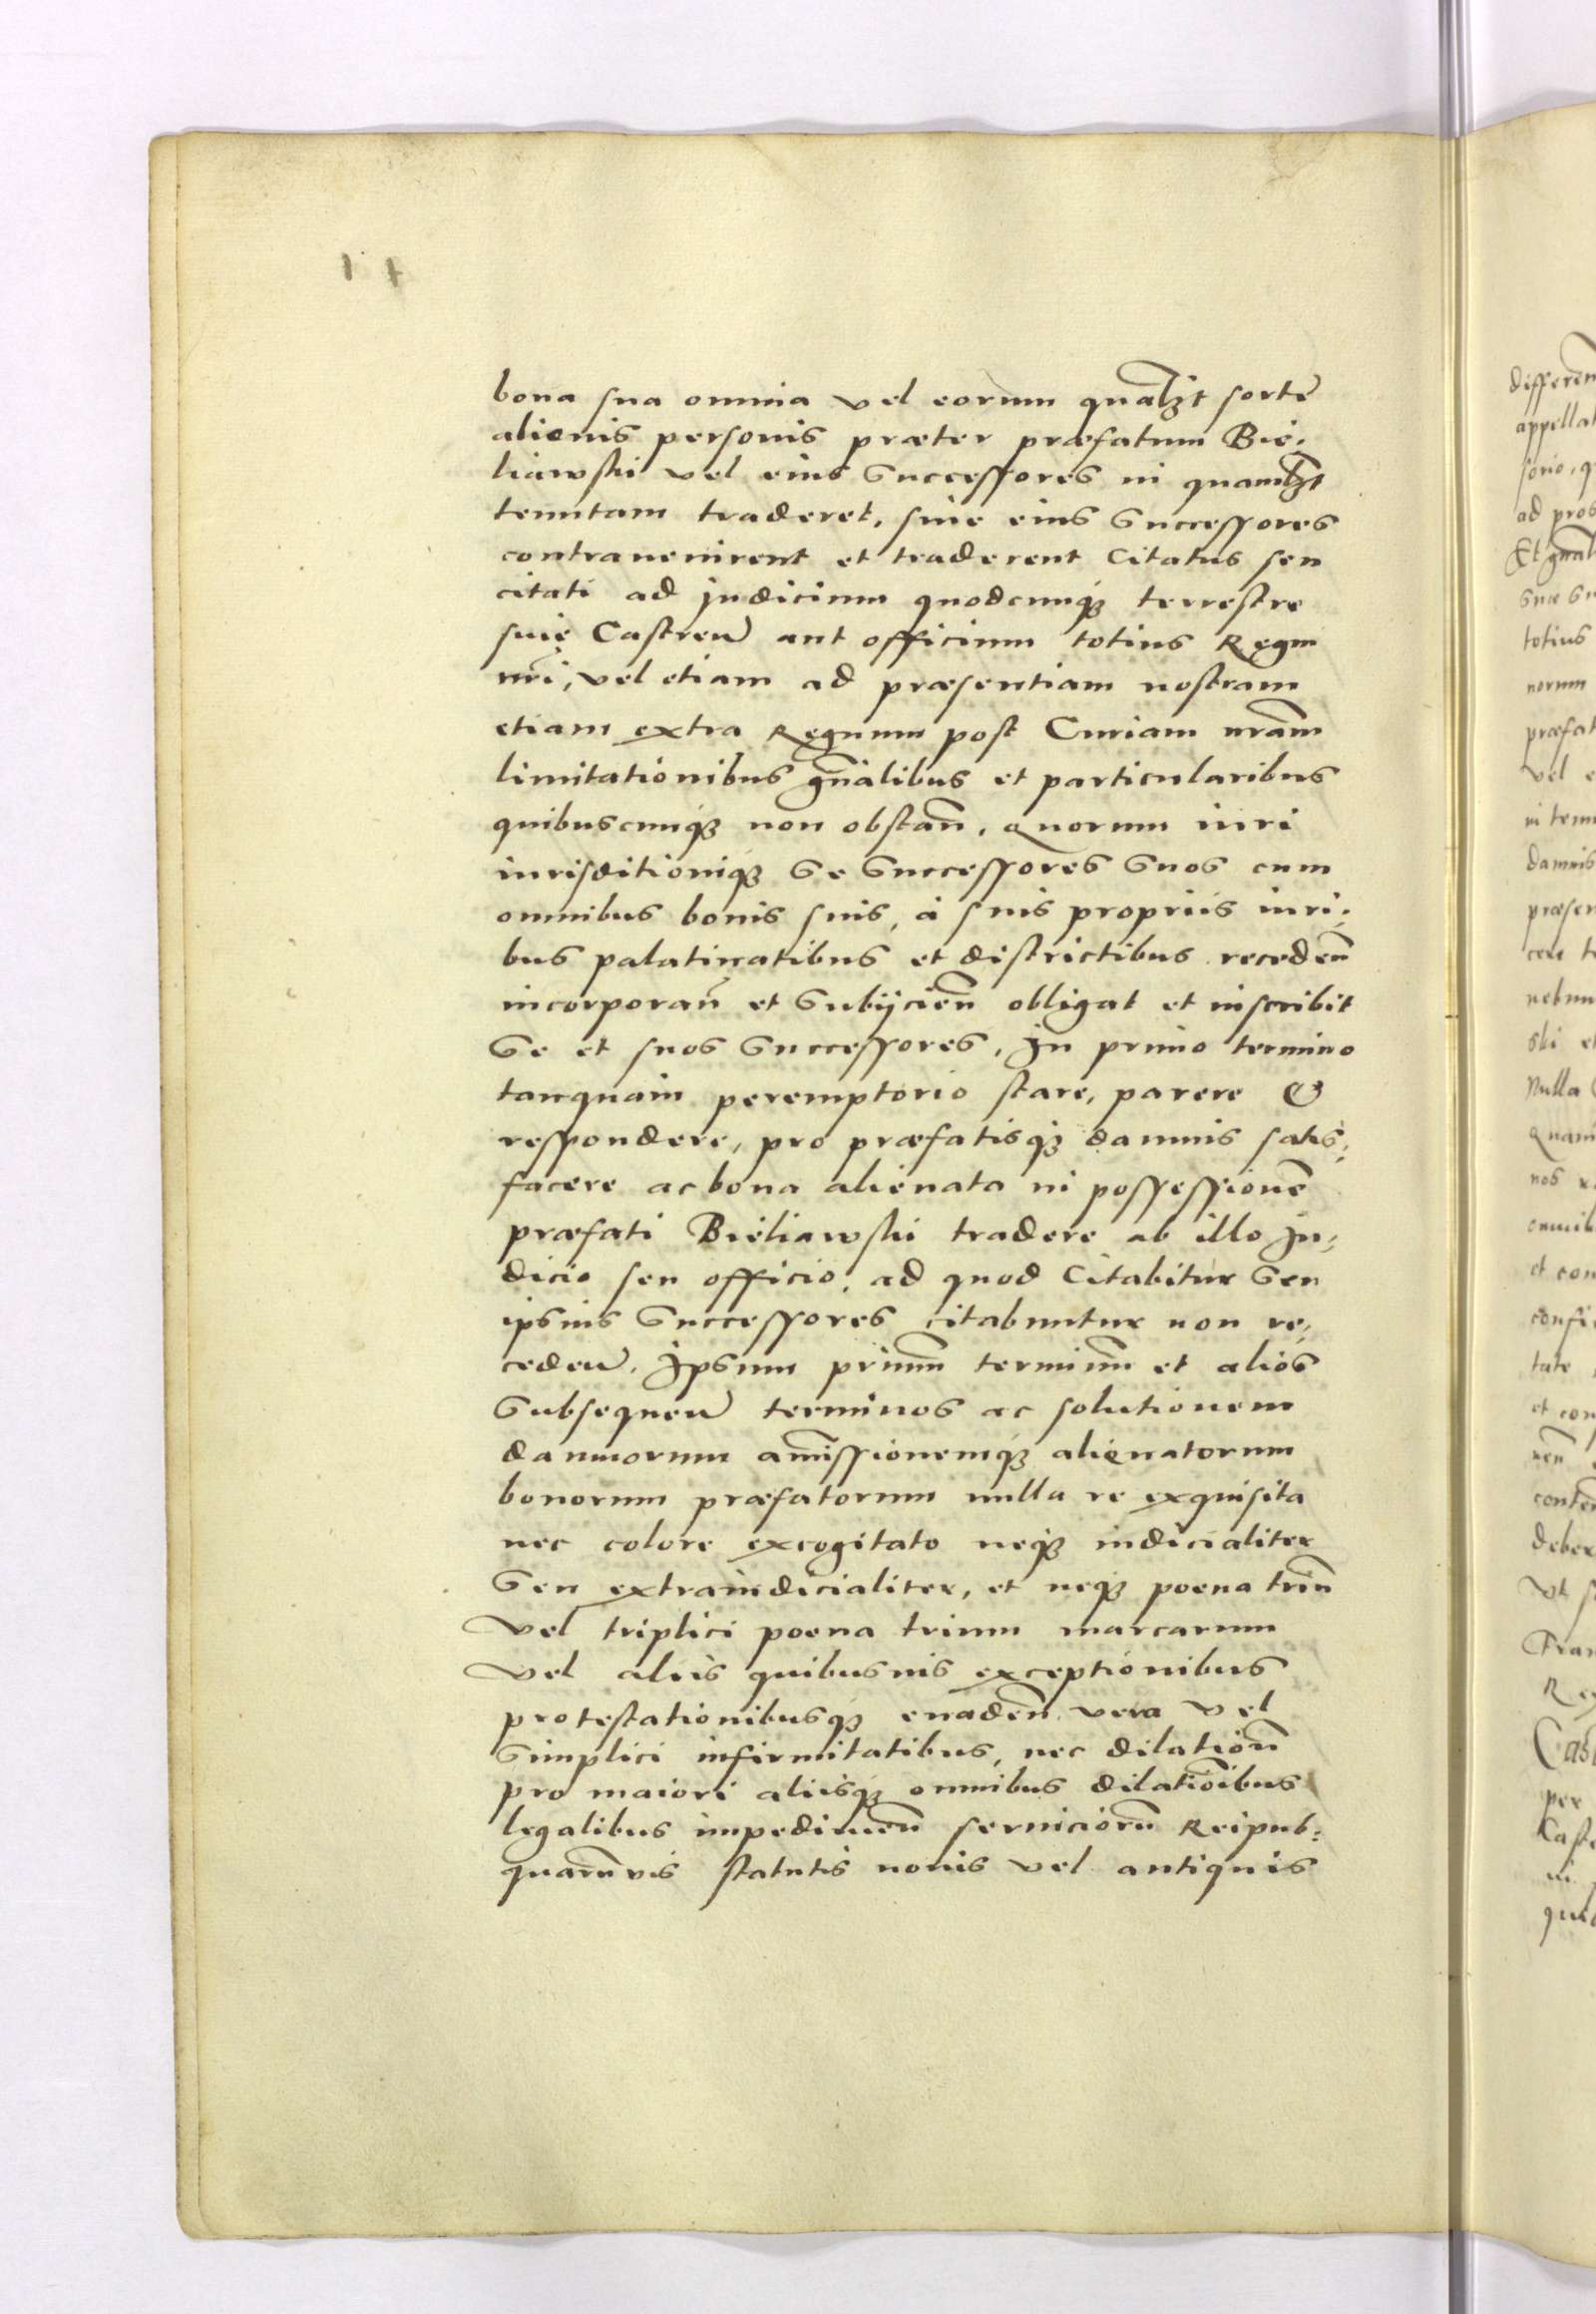 bona sua omnia vel eorum qualẝt sortẽ
alienis personis præter præfatum Bie-
liawski vel eius Successores in quamlẝt
tenutam traderet, siue eius Successores
contrauenirent et traderent Citatus seu
citati ad Judicium quodcunqȝ terrestre
siue Castreñ aut officium totius Regni
nr̃i, vel etiam ad præsentiam nostram
etiam extra Regnum post Curiam nr̃am
limitationibus gñalibus et particularibus
quibuscunqȝ non obstañ, quorum iuri
iurisditioniqȝ Se Successores Suos cum
omnibus bonis suis, à suis propriis iuri-
bus palatinatibus et districtibus recedeñ
incorporañ et Subijcieñ obligat et inscribit
Se et suos Successores, In primo termino
tanquam peremptorio stare, parere &
respondere, pro præfatisqȝ damnis satis-
facere ac bona alienata in possessionẽ
præfati Bieliawski tradere ab illo Ju-
dicio seu officio, ad quod Citabitur Seu
ipsius Successores citabuntur non re-
cedeñ. Ipsum primũ terminũ et alios
Subsequeñ terminos ac solutionem
damnorum amissionemqȝ alienatorum
bonorum præfatorum nulla re exquisita
nec colore excogitato neqȝ iudicialiter
Seu extraiudicialiter, et neqȝ poena triũ
vel triplici poena trium marcarum
vel aliis quibusuis exceptionibus
protestationibusqȝ euadeñ vera vel
Simplici infirmitatibus, nec dilationũ
pro maiori aliisqȝ omnibus dilatiõibus
legalibus impedimeñ seruiciorũ Reipub:
quarũvis statutis nouis vel antiquis